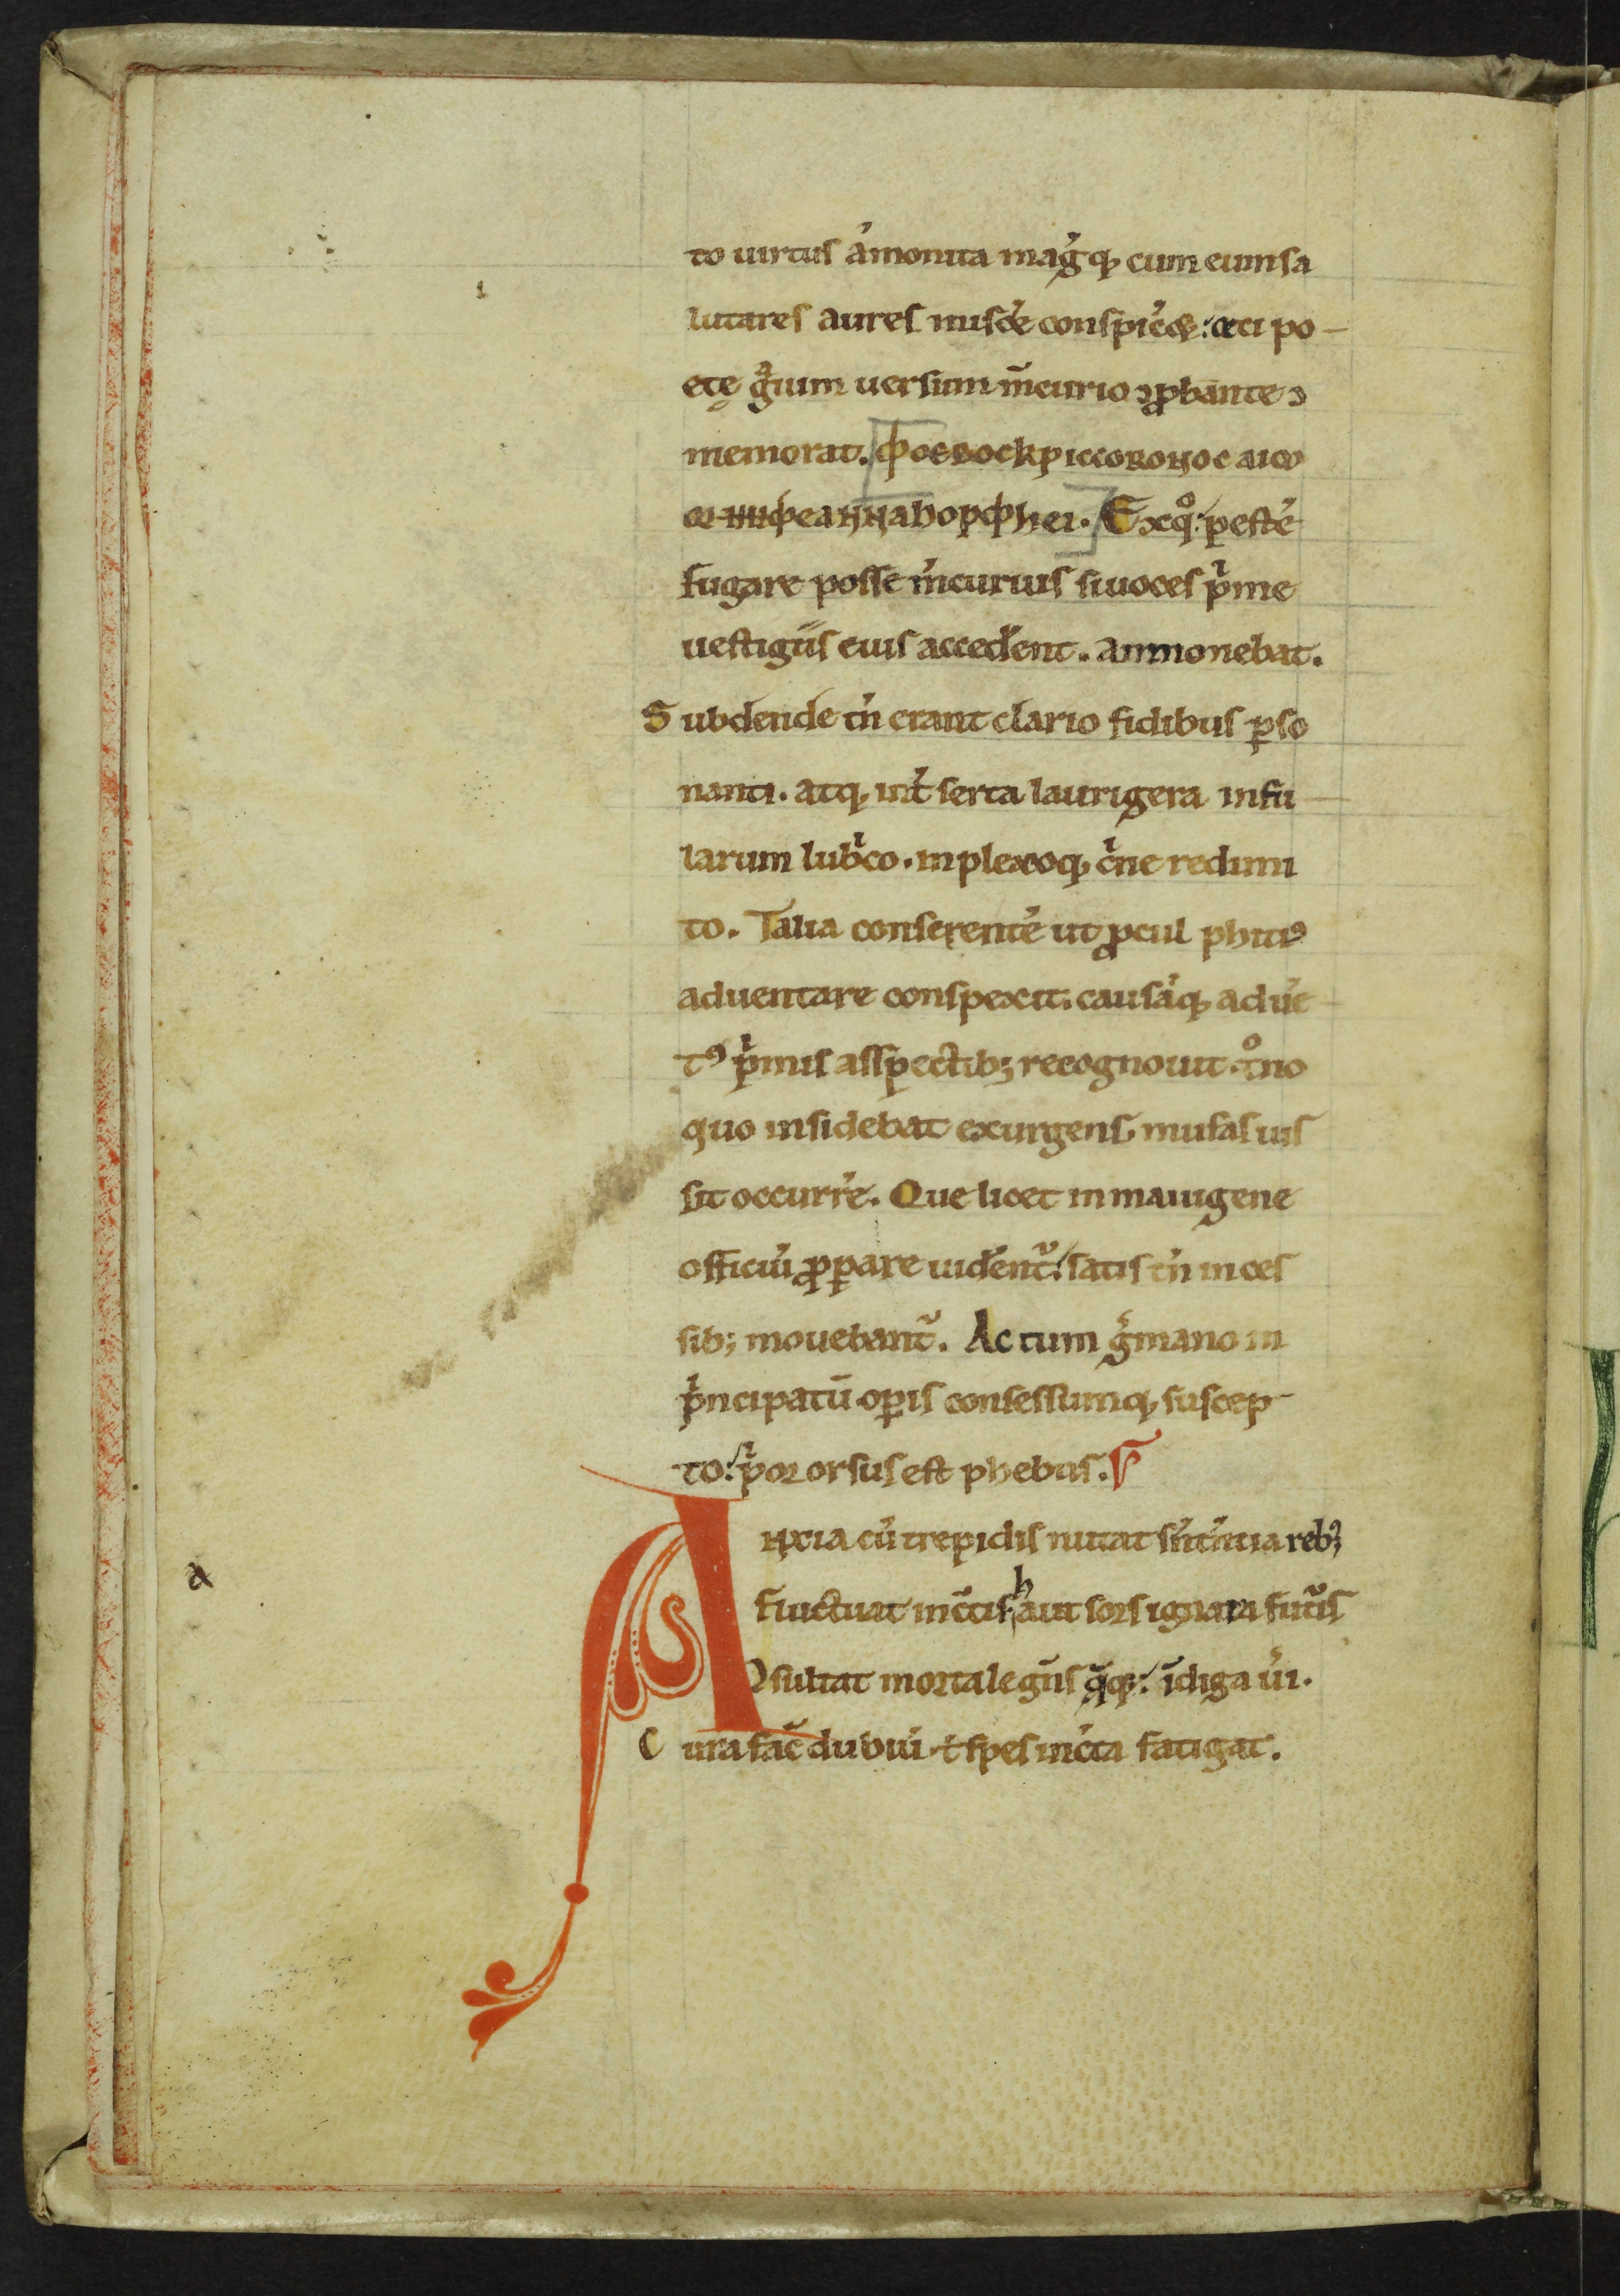 to uirtus ámonita mag̾q; cum eum sa
lutares aures miscé conspiceꝫ: cęci po-
etę g̃ium uersum m̃curio ꝯꝓbante
memorat. ϕοεβοc
Exqͦ pesté
fugare posse m̃curius si uoces p̾me
uestigiis eius accederent. ammonebat.
Subdende tñ erant clario fidibus ꝑso
nanti. atq; int̾ serta laurigera infu
larum lub̾co. inplexoq; c̾ne redimi
to. Talia conserente ut ꝓcul phitiꝰ
aduentare conspexit. causáq; aduẽ
tꝰ p̾mis asspectibꝫ recognouit. tͦno
quo insidebat exurgens, musas ius
sit occurre. Que licet in maiugene
officiũ ꝓꝑare uident̾: satis tñ inces
sibꝫ mouebant̾. Ac tum g̾mano in
p̾ncipatũ oꝑis consessumq; suscep-
to: p̾or orsus est phebus.
Anxia cũ trepidis nutat sñtẽtia rebꝫ
a
fluctuat inc̃tis h aut sors ignara fut̾is
ꝯsultat mortale gñs q̃q;: ĩdiga ũi.
Cura fac̃ dubiũ. t̃ spes inc̃ta fatigat.